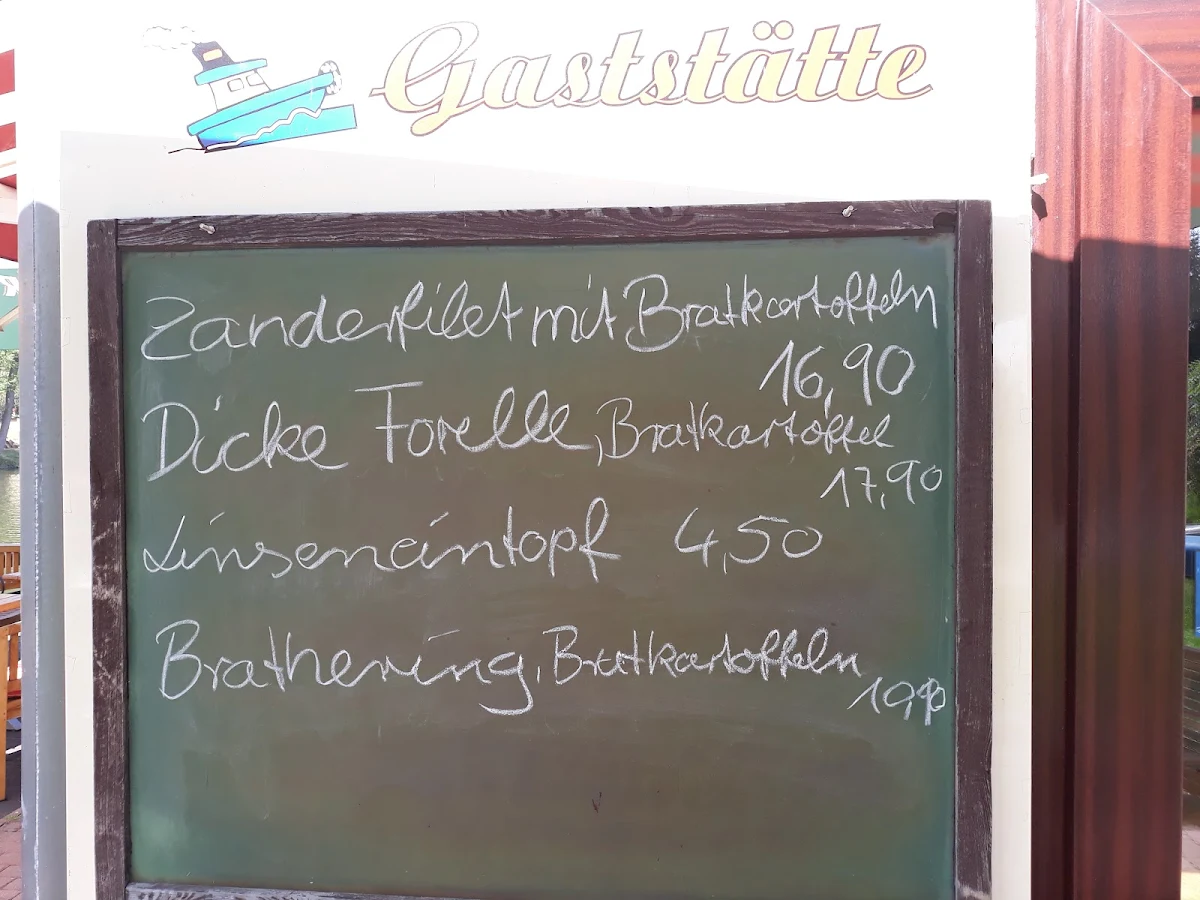 Gaststätte
Zanderfilet mit Bratkartoffeln
16,90
Dicke Forelle, Bratkartoffel
17,90
Linseneintopf 4,50
Brathering, Bratkartoffeln
10,90